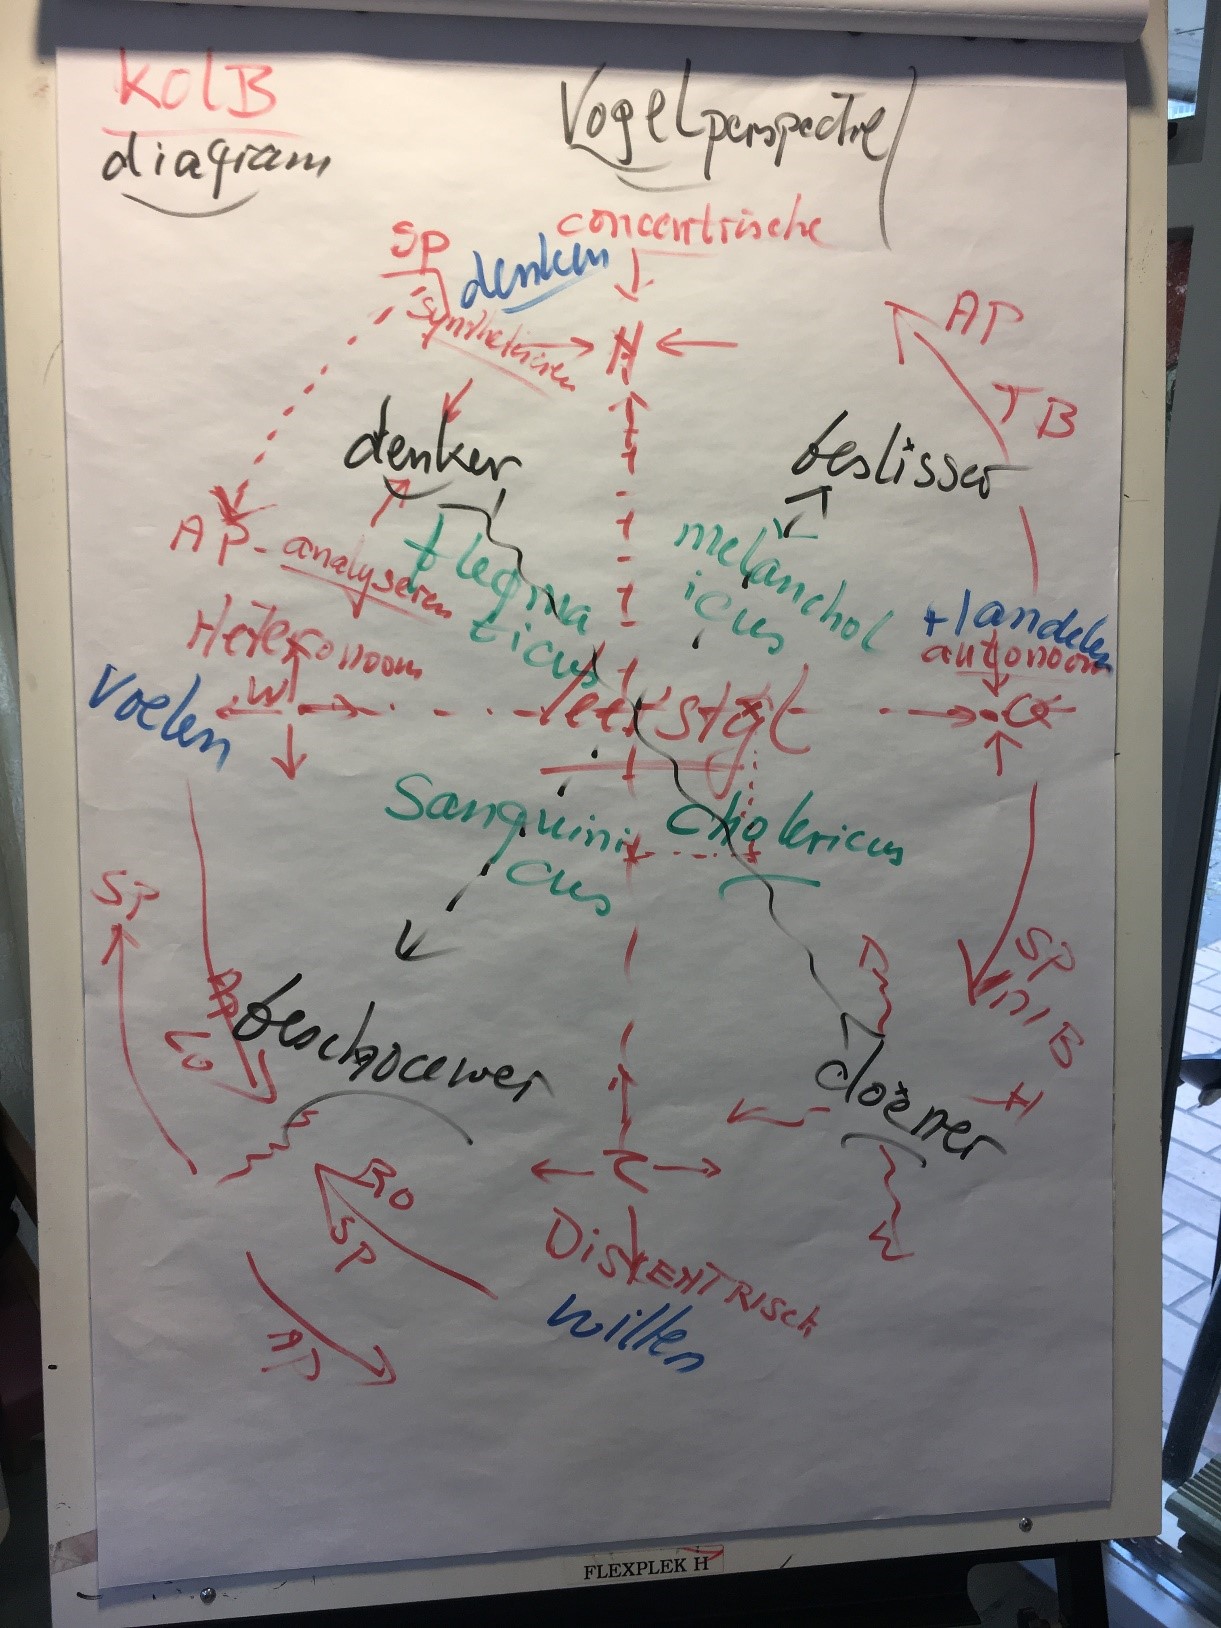 KolB
diagram
Vogelperspectief
concentrische
SP
denken
synthetiseren
N
AP
TB
denker
beslisser
AP - analyseren
flegma
ticus
melanchol
icus
Heteronoom
Handelen
autonoom
voelen
W
leerstijl
Sanquini
cus
Cholericus
SP
SP
beschoewer
doener
RO
SP
DiskENTRisch
willen
AP
FLEXPLEK H